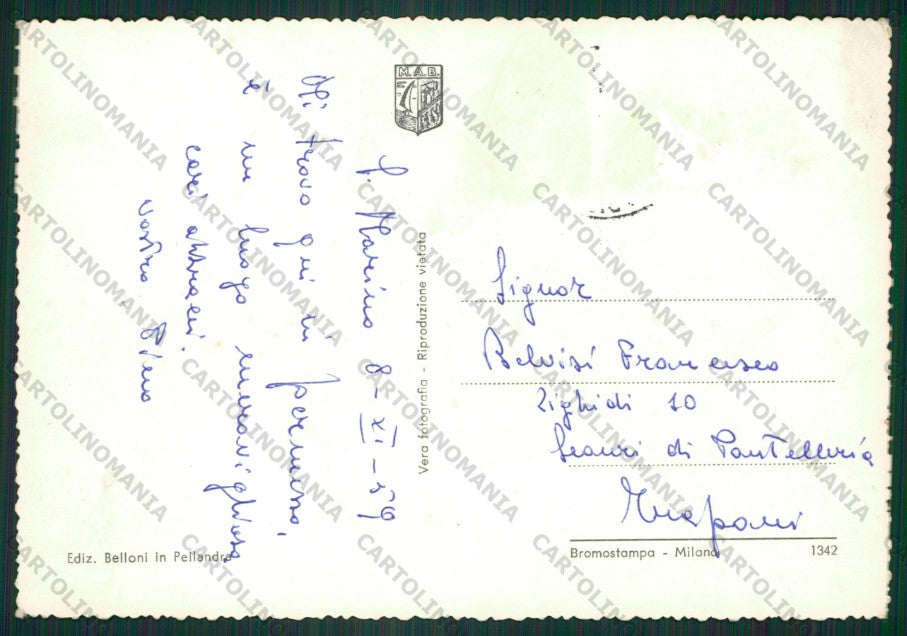 M.A.B.
S. Marino 8-XI-59
Mi trovo qui in permesso,
è un luogo meraviglioso,
cari abbracci.
Vostro
Vera fotografia - Riproduzione vietata
Signor
Belvisi Francesco
Zighidi 10
Scauri di Pantelleria
Trapani
Ediz. Belloni in Pellandra
Bromostampa - Milano
1342
CARTOLINOMANIA